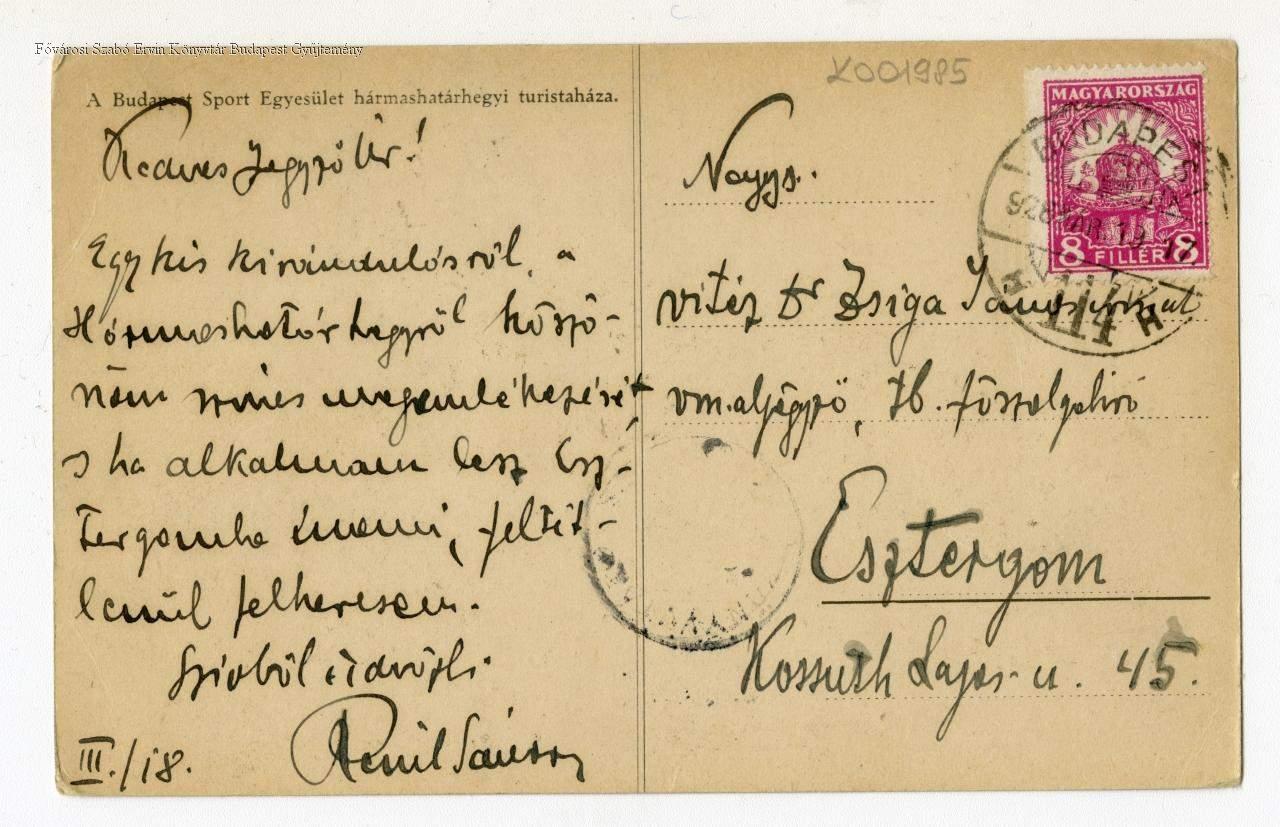 Fővárosi Szabó Ervin Könyvtár Budapest Gyűjtemény
X001985
A Budapest Sport Egyesület hármashatárhegyi turistaháza.
Kedves Jegyző Úr!
Egy kis kirándulásról, a
Hármashatárhegyről köszö-
nöm szives megemlékezését
s ha alkalmam lesz Esz-
tergomba menni, feltét-
lenül felkeresem.
Szivből üdvözli
Sándor
III./18.
MAGYARORSZÁG
8 FILLÉR 8
BUDAPEST
928 MÁR. 19 17
114
Nagys.
vitéz Dr Zsiga János urnak
vm. aljegyző, tb. főszolgabiró
Esztergom
Kossuth Lajos u. 45.